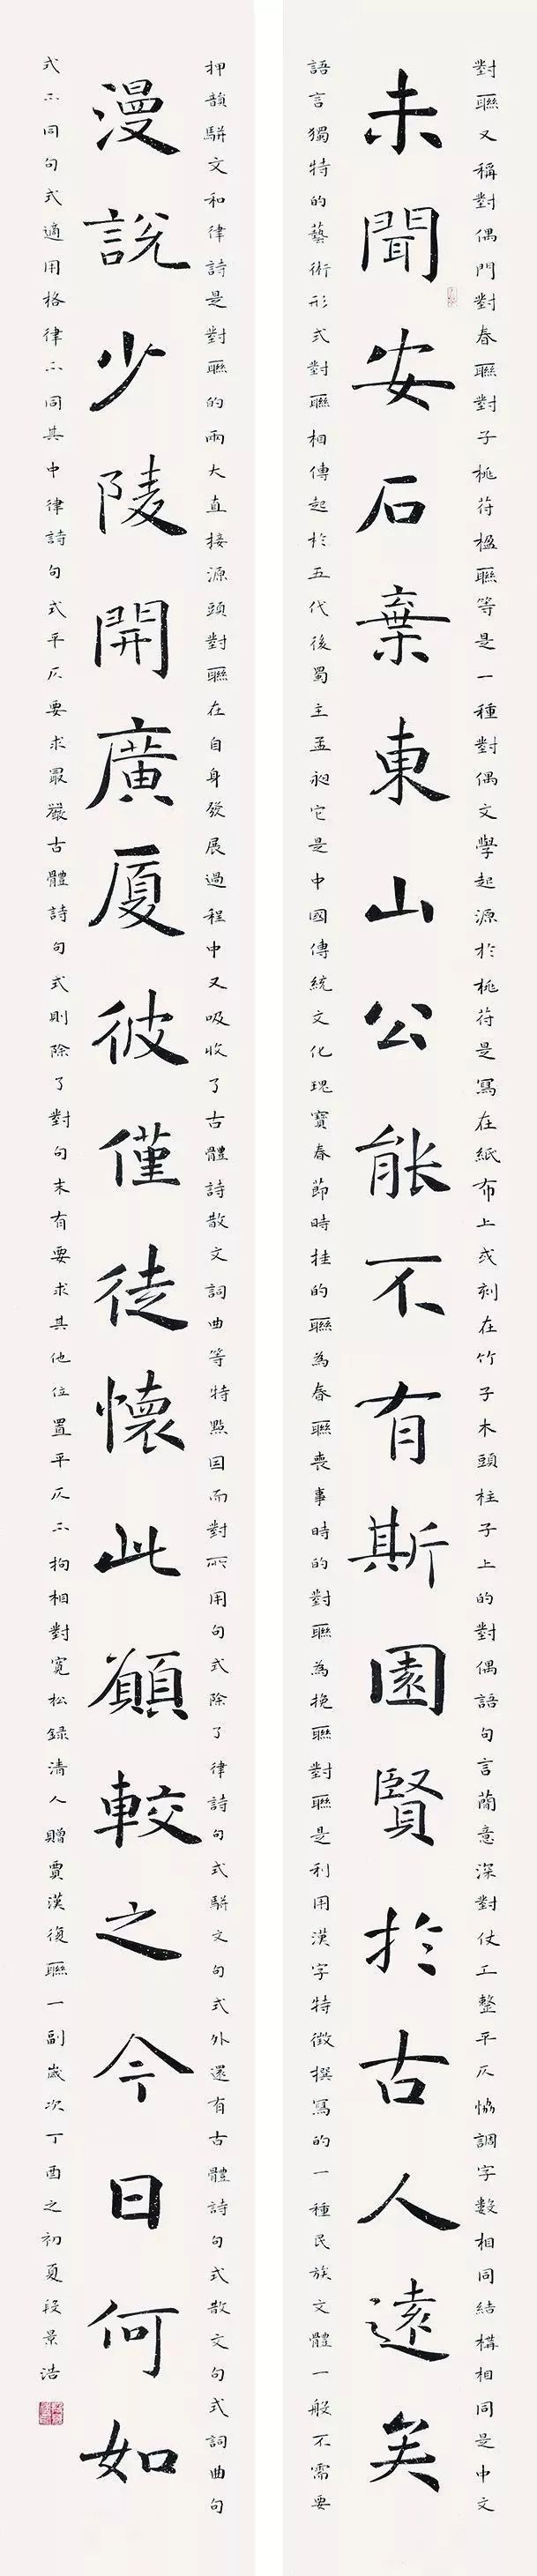 對聯又稱對偶門對春聯對子桃符楹聯等是一種對偶文學起源於桃符是寫在紙布上或刻在竹子木頭柱子上的對偶語句言蕳意深對仗工整平仄恊調字數相同結構相同是中文
未聞安石棄東山公能不有斯園賢於古人遠矣
語言獨特的藝術形式對聯相傳起於五代後蜀主孟昶它是中國傳統文化瑰寶春節時挂的聯為春聯喪事時的對聯為挽聯對聯是利用漢字特徵撰寫的一種民族文體一般不需要
押韻駢文和律詩是對聯的兩大直接源頭對聯在自身發展過程中又吸收了古體詩散文詞曲等特點因而對所用句式除了律詩句式駢文句式外還有古體詩句式散文句式詞曲句
漫說少陵開廣厦彼僅徒懷此願較之今日何如
式不同句式適用格律不同其中律詩句式平仄要求最嚴古體詩句式則除了對句末有要求其他位置平仄不拘相對寬松錄清人贈賈漢復聯一副歲次丁酉之初夏段景浩